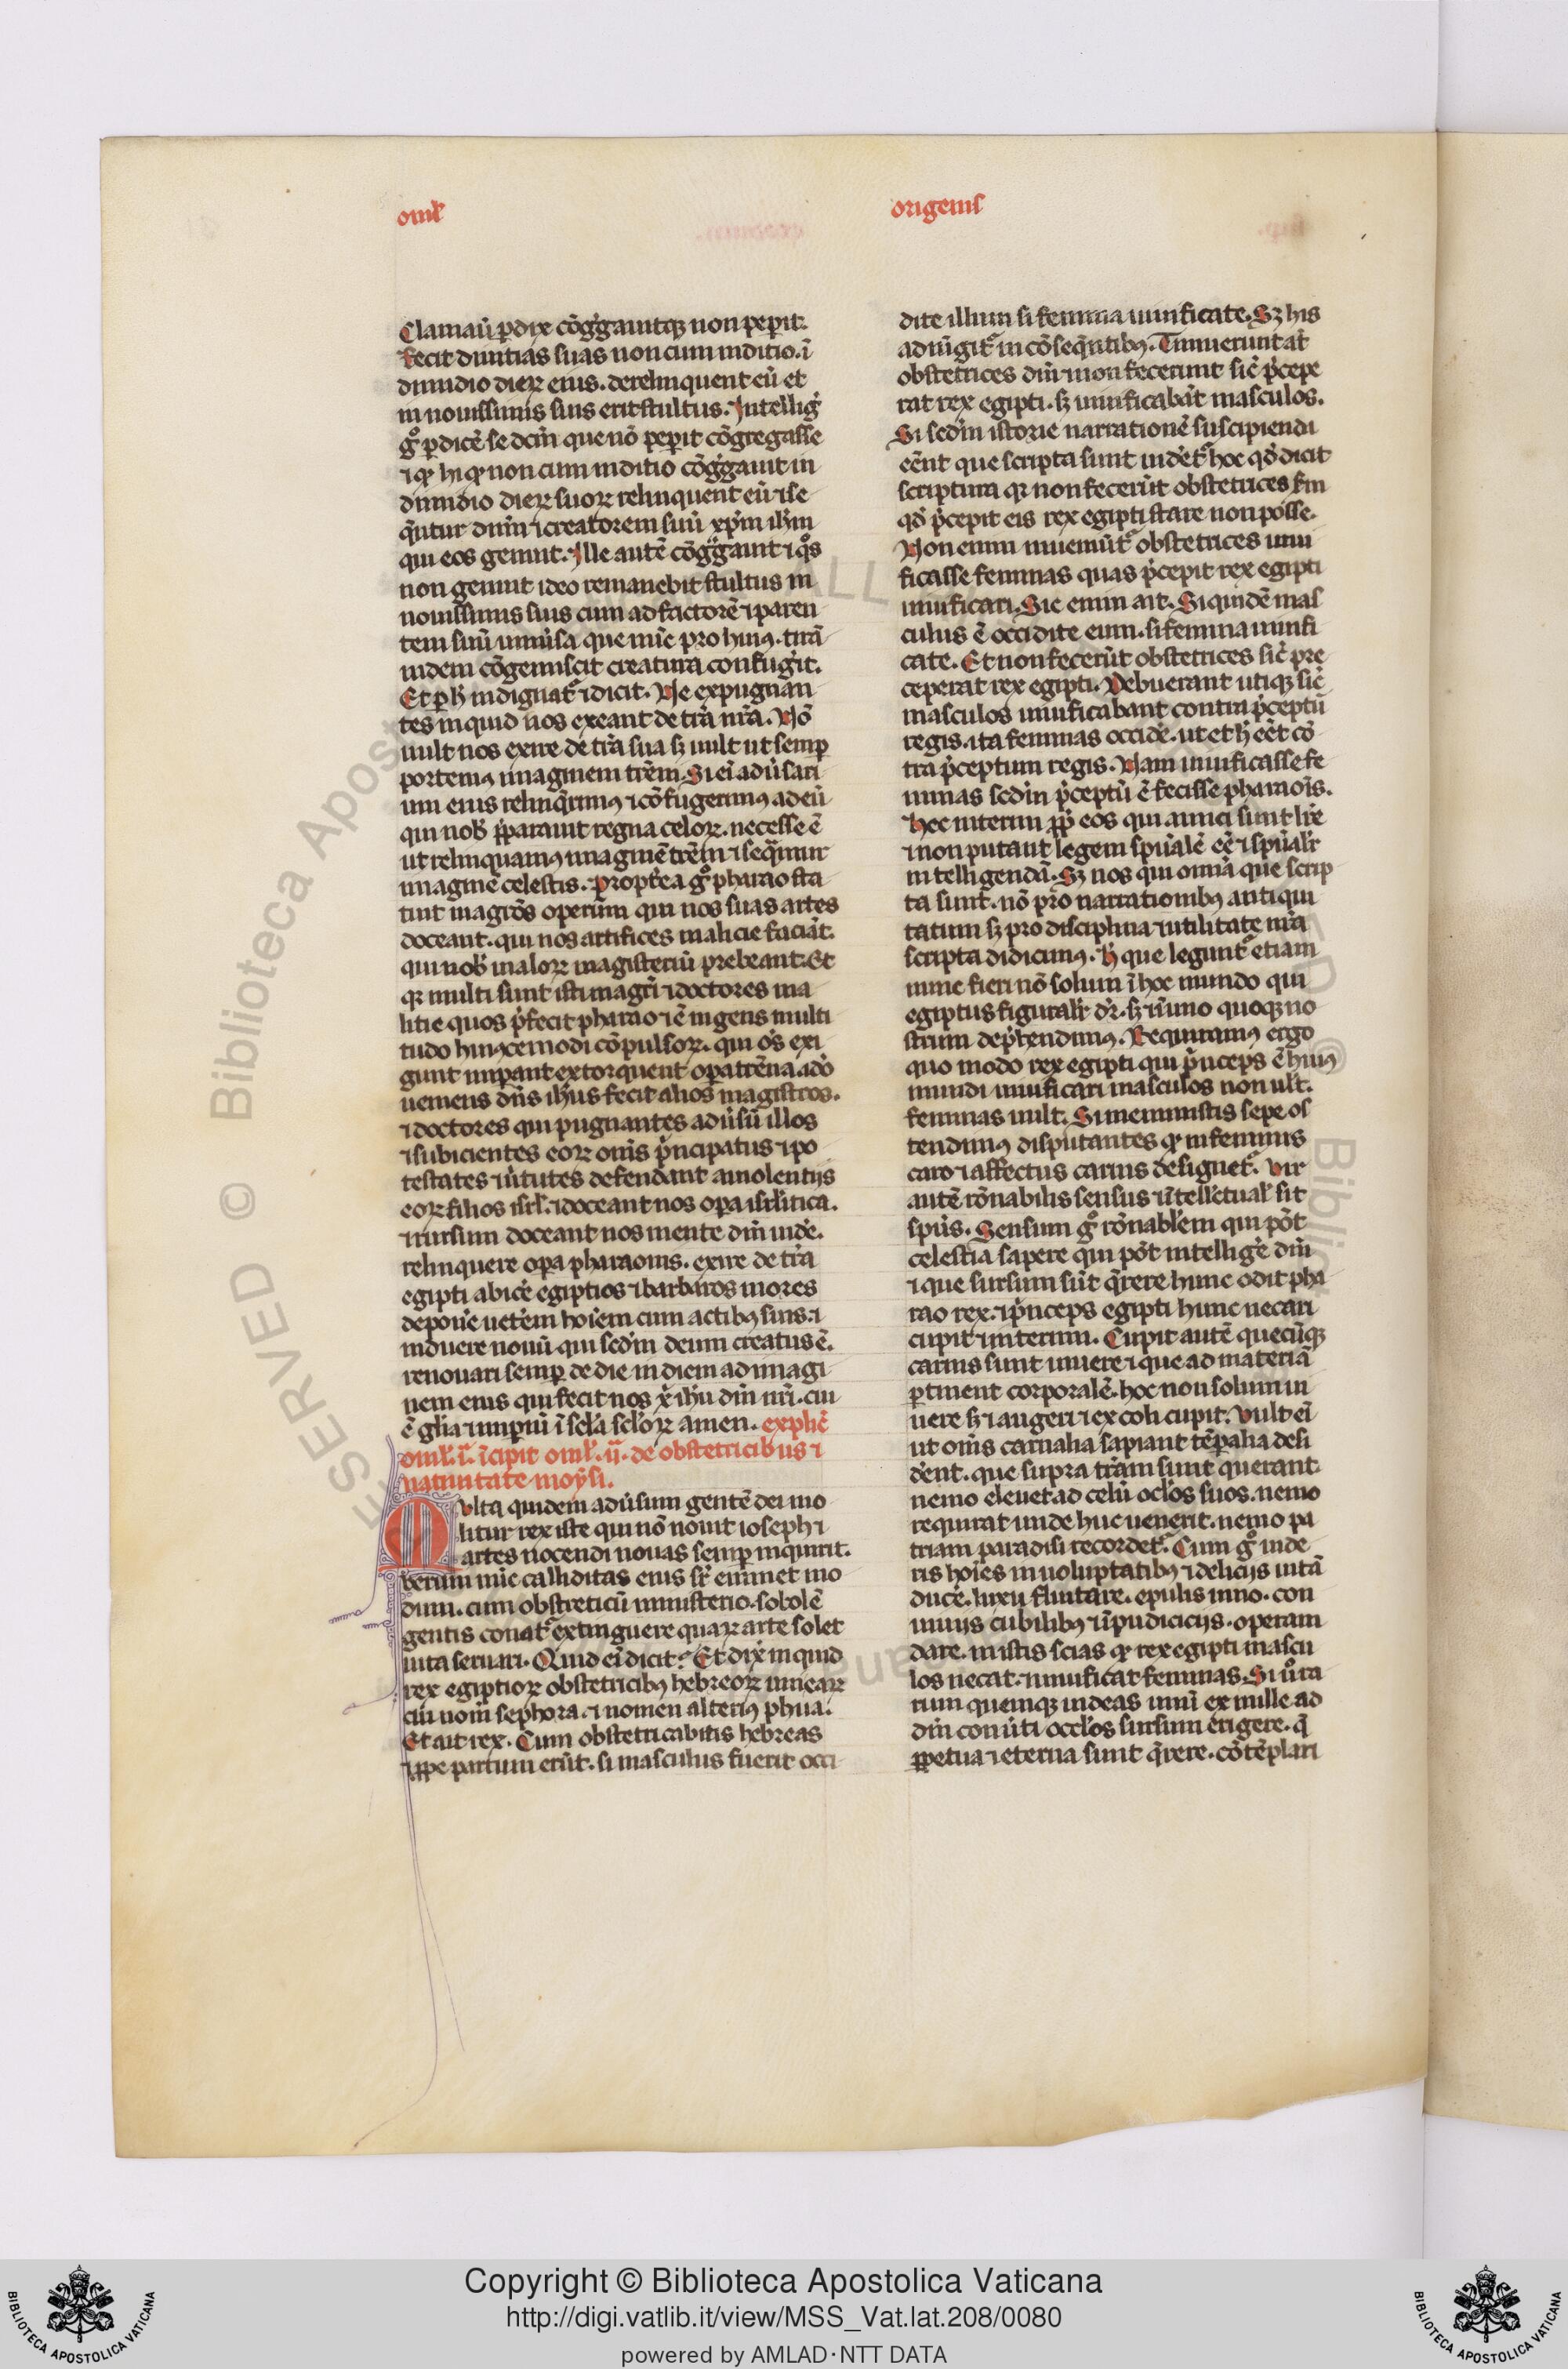 omł
origenis
Clamaũ ꝑdix cõg̃gauitqꝫ non peꝑit.
fecit diuitias suas non cum iuditio. ĩ
dimidio dieꝝ eius. derelinquent eũ et
in nouissimis suis erit stultus. Intellig̃
g̊ ꝑdicẽ. se dcm̃ que nõ peꝑit cõgregasse
⁊ qꝛ hiqꝛ non cum iuditio cõg̃gauit in
dimidio dieꝝ suoꝝ relinquent eũ ⁊ se
q̃ntur dñm ⁊ creatorem suũ xp̃m ih̃m
qui eos genuit. Ille autẽ cõg̃gauit ⁊ q̊s
non genuit ideo remanebit stultus in
nouissimis suis cum ad factorẽ ⁊ paren
tem suũ uniũsa que nũc pro huiꝰ tirã
nidem cõgemiscit creatura confug̃it.
Et ꝑ h̃ indignat̃ ⁊ dicit. Ne expugnan
tes inquid nos exeant de tr̃a nr̃a. Nõ
uult nos exire de tr̃a sua sꝫ uult ut semꝑ
portemꝰ imaginem trẽm. Si eĩ adũsari
um eius relinq̃rimꝰ ⁊ cõfugerimꝰ ad eũ
qui nob̃ p̃parauit regna celoꝝ. necesse ẽ
ut relinquamꝰ imaginẽ trẽm ⁊ seq̃mur
imaginẽ celestis. Propt̃ea g̊ pharao sta
tuit magr̃os operũm qui nos suas artes
doceant. qui nos artifices malicie faciãt.
qui nob̃ maloꝝ magisteriũ prebeant. Et
qꝛ multi sunt isti magr̃i ⁊ doctores ma
litie quos p̃fecit pharao ⁊ ẽ ingens multi
tudo huiꝰcemodi cõpulsoꝝ. qui os̃ exi
gunt imꝑant extorquent oꝑa trẽna. idõ
ueniens dñs ih̃us fecit alios magistros.
⁊ doctores qui pugnantes adũsũ illos
⁊ subicientes eoꝝ om̃s p̃ncipatus ⁊ po
testates ⁊ ũtutes defendant a uiolentijs
eoꝝ filios isrł. ⁊ doceant nos oꝑa isrłitica.
⁊ rursum doceant nos mente dñm uidẽ.
relinquere oꝑa pharaonis. exire de tr̃a
egipti abicẽ egiptios ⁊ barbaros mores
deponẽ uetẽm hoĩem cum actibꝰ suis. ⁊
induere nouũ qui scdm̃ deum creatus ẽ.
renouari semꝑ de die in diem ad imagi
nem eius qui fecit nos x̃ ih̃u dñm nr̃i. cui
ẽ glĩa ⁊ imꝑiũ ĩ scła scłoꝝ amen. explič
omł. ĩ. ĩcipit omł. ĩj. de obstetricibus ⁊
natiuitate moysi.
Multa quidem adũsum gentẽ dei mo
litur rex iste qui nõ nouit ioseph ⁊
artes nocendi nouas semꝑ inquirit.
Verum nũc calliditas eius sr̃ eminet mo
dum. cum obstreticũ ministerio. sobolẽ
gentis conat̃ extinguere quaꝝ arte solet
uita seruari. Quid eĩ dicit? Et dix̃ inquid
rex egiptioꝝ obstetricibꝰ hebreoꝝ unieaꝝ
cui nom̃ sephora. ⁊ nomen alteriꝰ phua.
Et ait rex. Cum obstetricabitis hebreas
⁊ ꝓpe partum erũt. si masculus fuerit occi
dite illum si femina uiuificate. Sꝫ his
adiũgit̃ in cõseq̃ntibꝰ. Timuerunt at̃
obstetrices dñm ⁊ non fecerunt sič p̃cepe
rat rex egipti. sꝫ uiuificabãt masculos.
Si scdm̃ istorie narrationẽ suscipiendi
eẽnt que scripta sunt uidet̃ hoc qd̃ dicit
scriptura qꝛ non fecerũt obstetrices scdm̃
qd̃ p̃cepit eis rex egipti stare non posse.
Non enim inueniũt̃ obstetrices uiui
ficasse feminas quas p̃cepit rex egipti
uiuificari. Sic enim ait. Siquidẽ mas
culus ẽ occidite eum. si femina uiuifi
cate. Et non fecerũt obstetrices sič pre
ceperat rex egipti. Debuerant utiqꝫ sič
masculos uiuificabant contra p̃ceptũ
regis. ita feminas occidẽ. ut et h̃ eẽt cõ
tra p̃ceptum regis. Nam uiuificasse fe
minas scdm̃ p̃ceptũ ẽ fecisse pharaoĩs.
Hec interim ꝓp̃ eos qui amici sunt lr̃e
⁊ non putant legem spũalẽ eẽ ⁊ spũalr̃
intelligendã. Sꝫ nos qui omĩa que scrip
ta sunt. nõ pro narrationibꝰ antiqui
tatum sꝫ pro disciplina ⁊ utilitate nr̃a
scripta didicimꝰ. h̃ que legunt̃ etiam
nunc fieri nõ solum ĩ hoc mundo qui
egiptus figuralr̃ dr̃. sꝫ ⁊ ĩ uno quoqꝫ no
strum dep̃hendimꝰ. Requiramꝰ ergo
quo modo rex egipti qui p̃nceps ẽ huiꝰ
mundi uiuificari masculos non ult.
feminas uult. Si meministis sepe os
tendimꝰ disputantes qꝛ in feminis
caro ⁊ affectus carnis designet̃. Vir
autẽ rõnabilis sensus ⁊ ĩtellectual̃ sit
spũs. Sensum g̊ rõnabłem qui põt
celestia sapere qui põt intelligẽ dñm
⁊ que sursum sũt q̃rere hunc odit pha
rao rex. ⁊ p̃nceps egipti hunc necari
cupit ⁊ interimi. Cupit autẽ quecũqꝫ
carnis sunt uiuere ⁊ que ad materiã
ꝑtinent corporalẽ. hoc non solum ui
uere sꝫ ⁊ augeri ⁊ excoli cupit. Vult eĩ
ut om̃s carnalia sapiant tẽꝑalia desi
dẽnt. que supra tr̃am sunt querant.
nemo eleuet ad celũ ocłos suos. nemo
requirat unde huc uenerit. nemo pa
triam paradisi recordet̃. Cum g̊ uide
ris hoĩes in uoluptatibꝰ ⁊ delicijs uitã
ducẽ. luxu fluitare. epulis uino. con
uiuijs cubilibꝰ ⁊ ĩpudicicijs. operam
dare. in istis scias qꝛ rex egipti mascu
los necat. ⁊ uiuificat feminas. Si uẽro ra
rum quemqꝫ uideas unũ ex mille ad
dñm conũti occłos sursum erigere. q̃
ꝑpetua ⁊ eterna sunt q̃rere. cõtẽplari
Copyright © Biblioteca Apostolica Vaticana
http://digi.vatlib.it/view/MSS_Vat.lat.208/0080
powered by AMLAD·NTT DATA
BIBLIOTECA APOSTOLICA VATICANA
BIBLIOTECA APOSTOLICA VATICANA